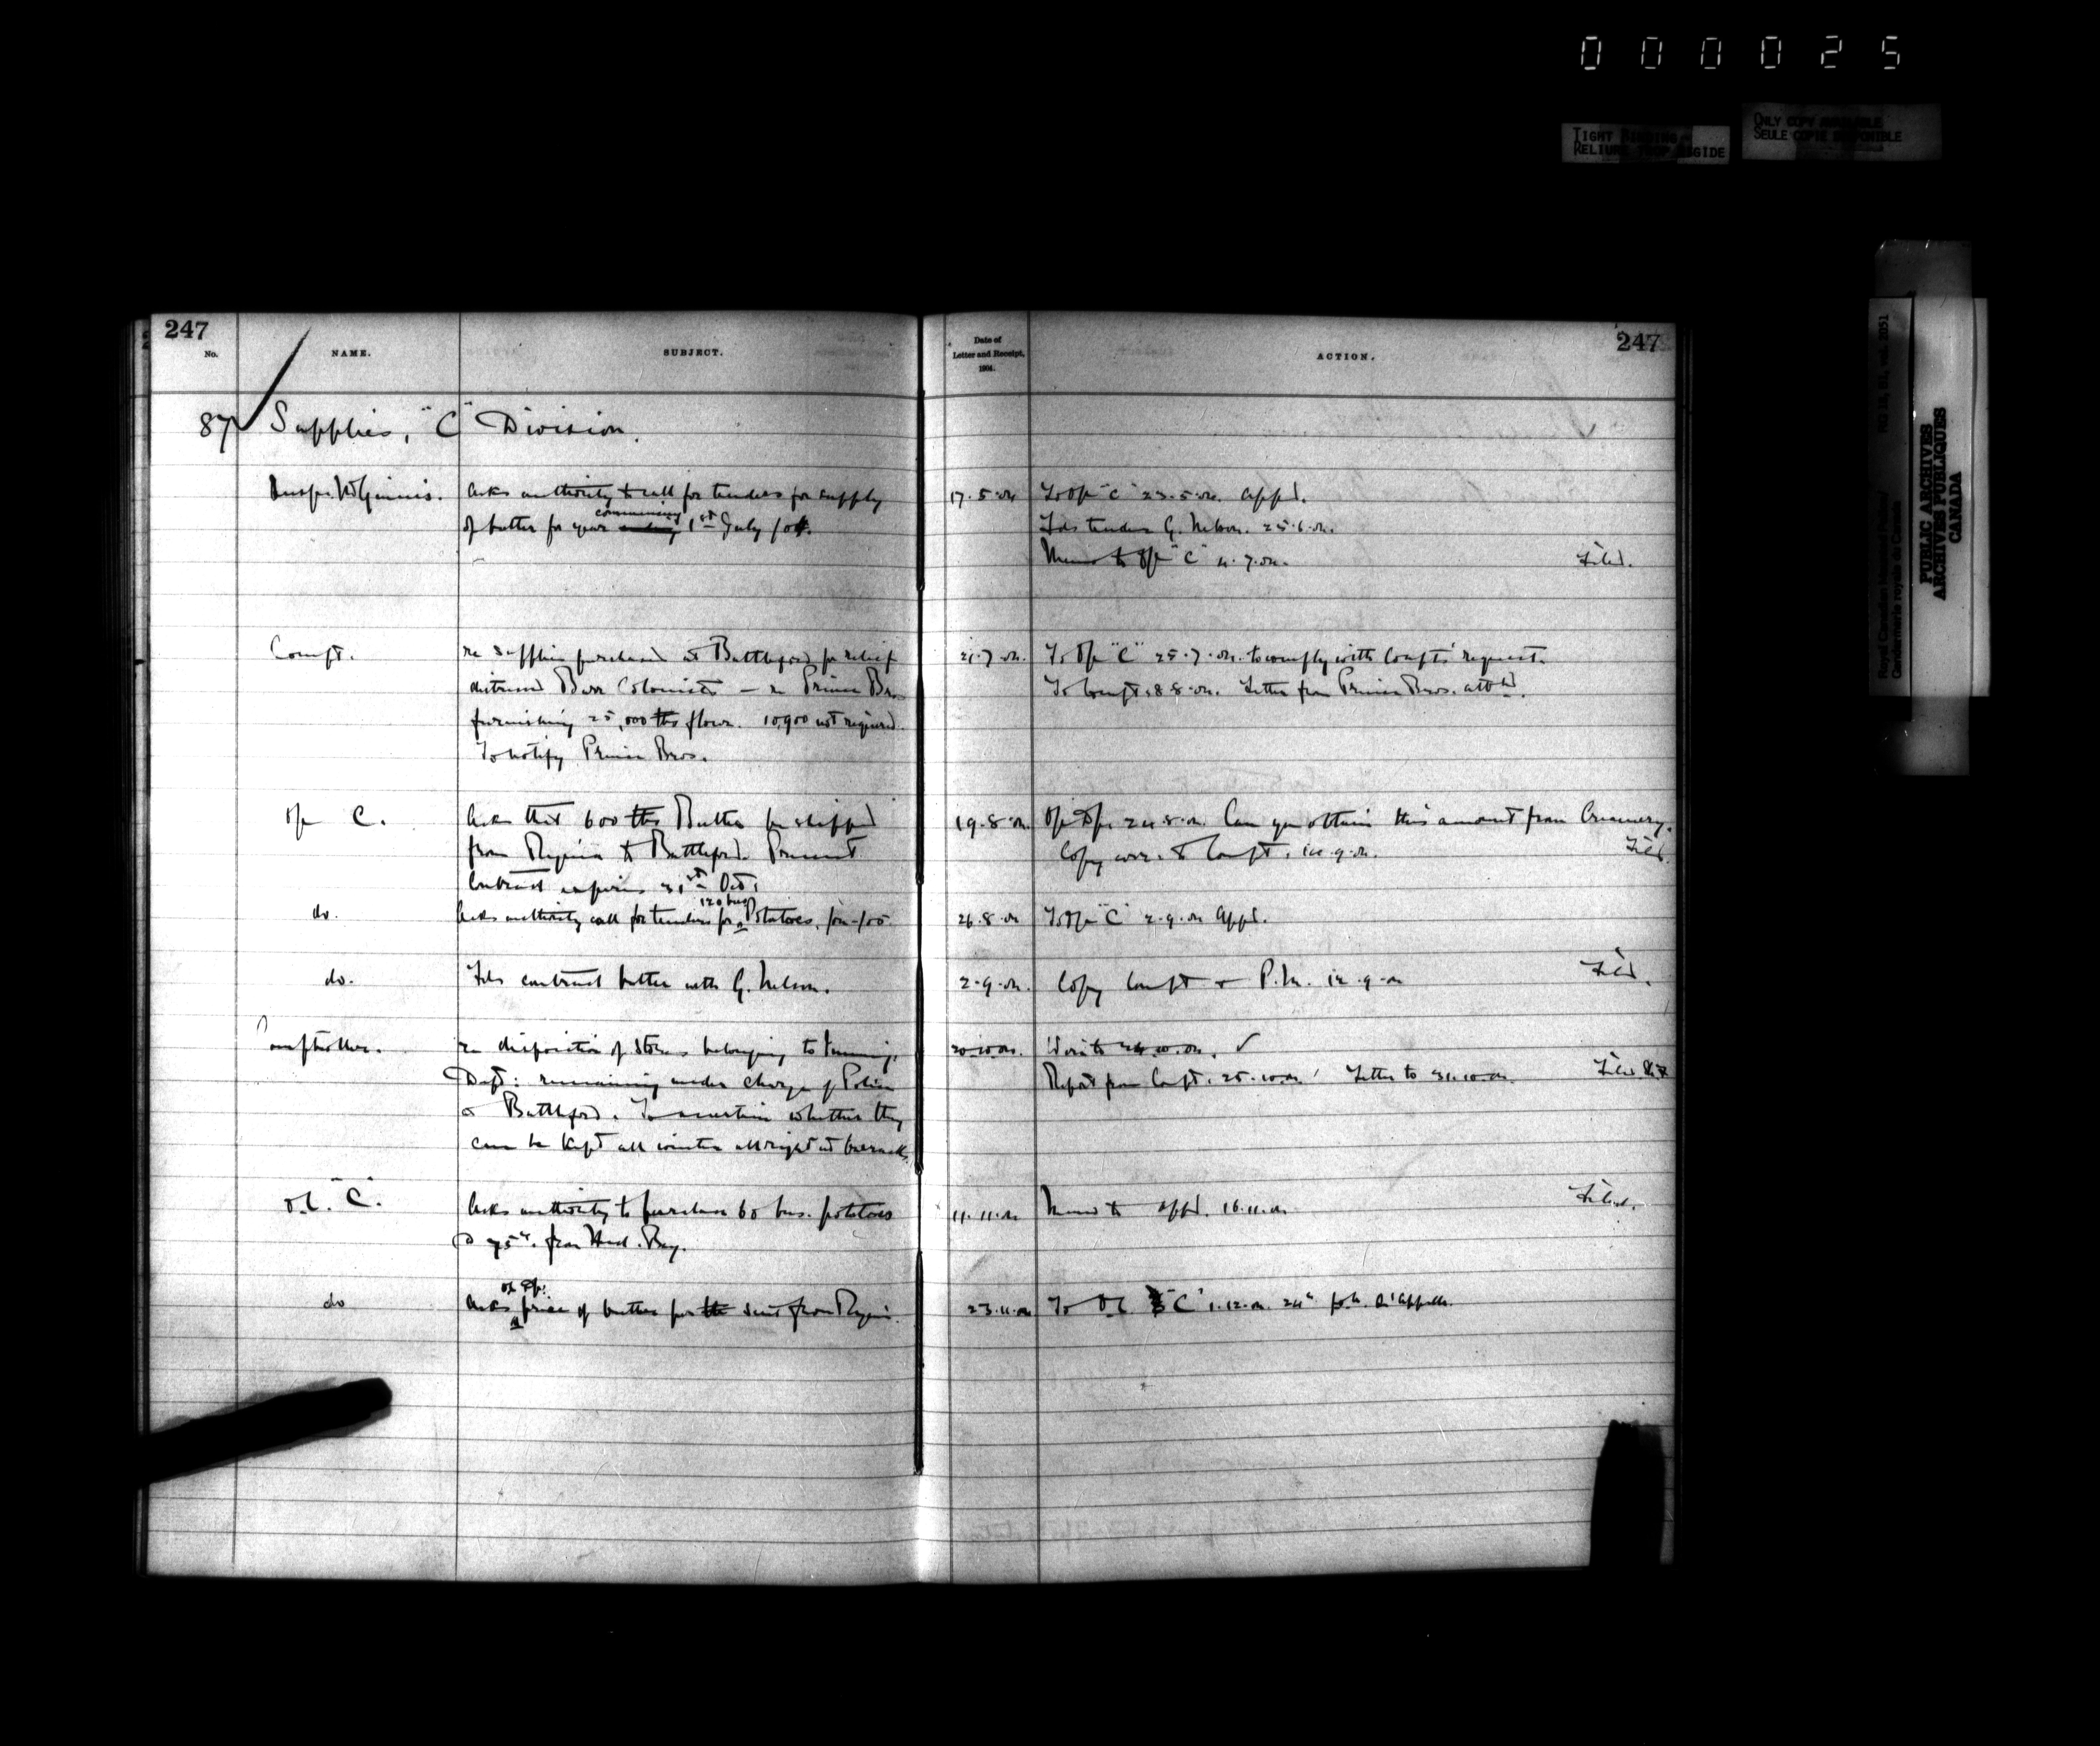 000025
TIGHT BINDING
RELIURE TROP RIGIDE
ONLY COPY AVAILABLE
SEULE COPIE DISPONIBLE
247
No.
NAME.
SUBJECT.
Date of
Letter and Receipt,
1904.
ACTION.
247
87 Supplies, "C" Division.
Inspr. McGinnis. Asks authority to call for tenders for supply 17.5.04 To Offr "C" 23.5.04. Appd.
of butter for year commencing 1st July /04. Fds tender G. Nelson. 25.6.04.
Memo to Offr "C" 4.7.04. Filed.
Compt. re supplies purchased at Battleford for relief 21.7.04. To Offr "C" 25.7.04. to comply with Compt's request.
distressed Barr Colonists — re Prince Bros. To Compt. 8.8.04. Letter from Prince Bros. attd.
furnishing 25,000 lbs flour. 10,900 not required.
To notify Prince Bros.
Offr C. Asks that 600 lbs Butter be shipped 19.8.04. 24.8.04. Can you obtain this amount from Creamery.
from Regina to Battleford. Present Copy corr. to Compt. 14.9.04. Filed.
Contract expires 31st Oct.
do. Asks authority call for tenders for 120 bus Potatoes, /04-/05. 26.8.04 To Offr "C" 2.9.04 Appd.
do. Fds contract butter with G. Nelson. 2.9.04. Copy Compt + P.M. 14.9.04 Filed.
Comptroller. re disposition of Stores belonging to Immig. 20.10.04. Wrote 24.10.04. ✓
Dept: remaining under charge of Police Report from Compt. 25.10.04. Letter to 31.10.04. Filed
@ Battleford. To ascertain whether they
can be kept all winter allright at barracks.
O.C. "C". Asks authority to purchase 60 bus. potatoes 11.11.04 Memo to appd. 16.11.04 Filed.
@ 75c. from Hud. Bay.
do Asks price of butter per lb sent from Regina. 23.11.04 To OC "C" 1.12.04. 24c Qu'Appelle.
Royal Canadian Mounted Police/
Gendarmerie royale du Canada
RG 18, B1, vol. 2051
PUBLIC ARCHIVES
ARCHIVES PUBLIQUES
CANADA